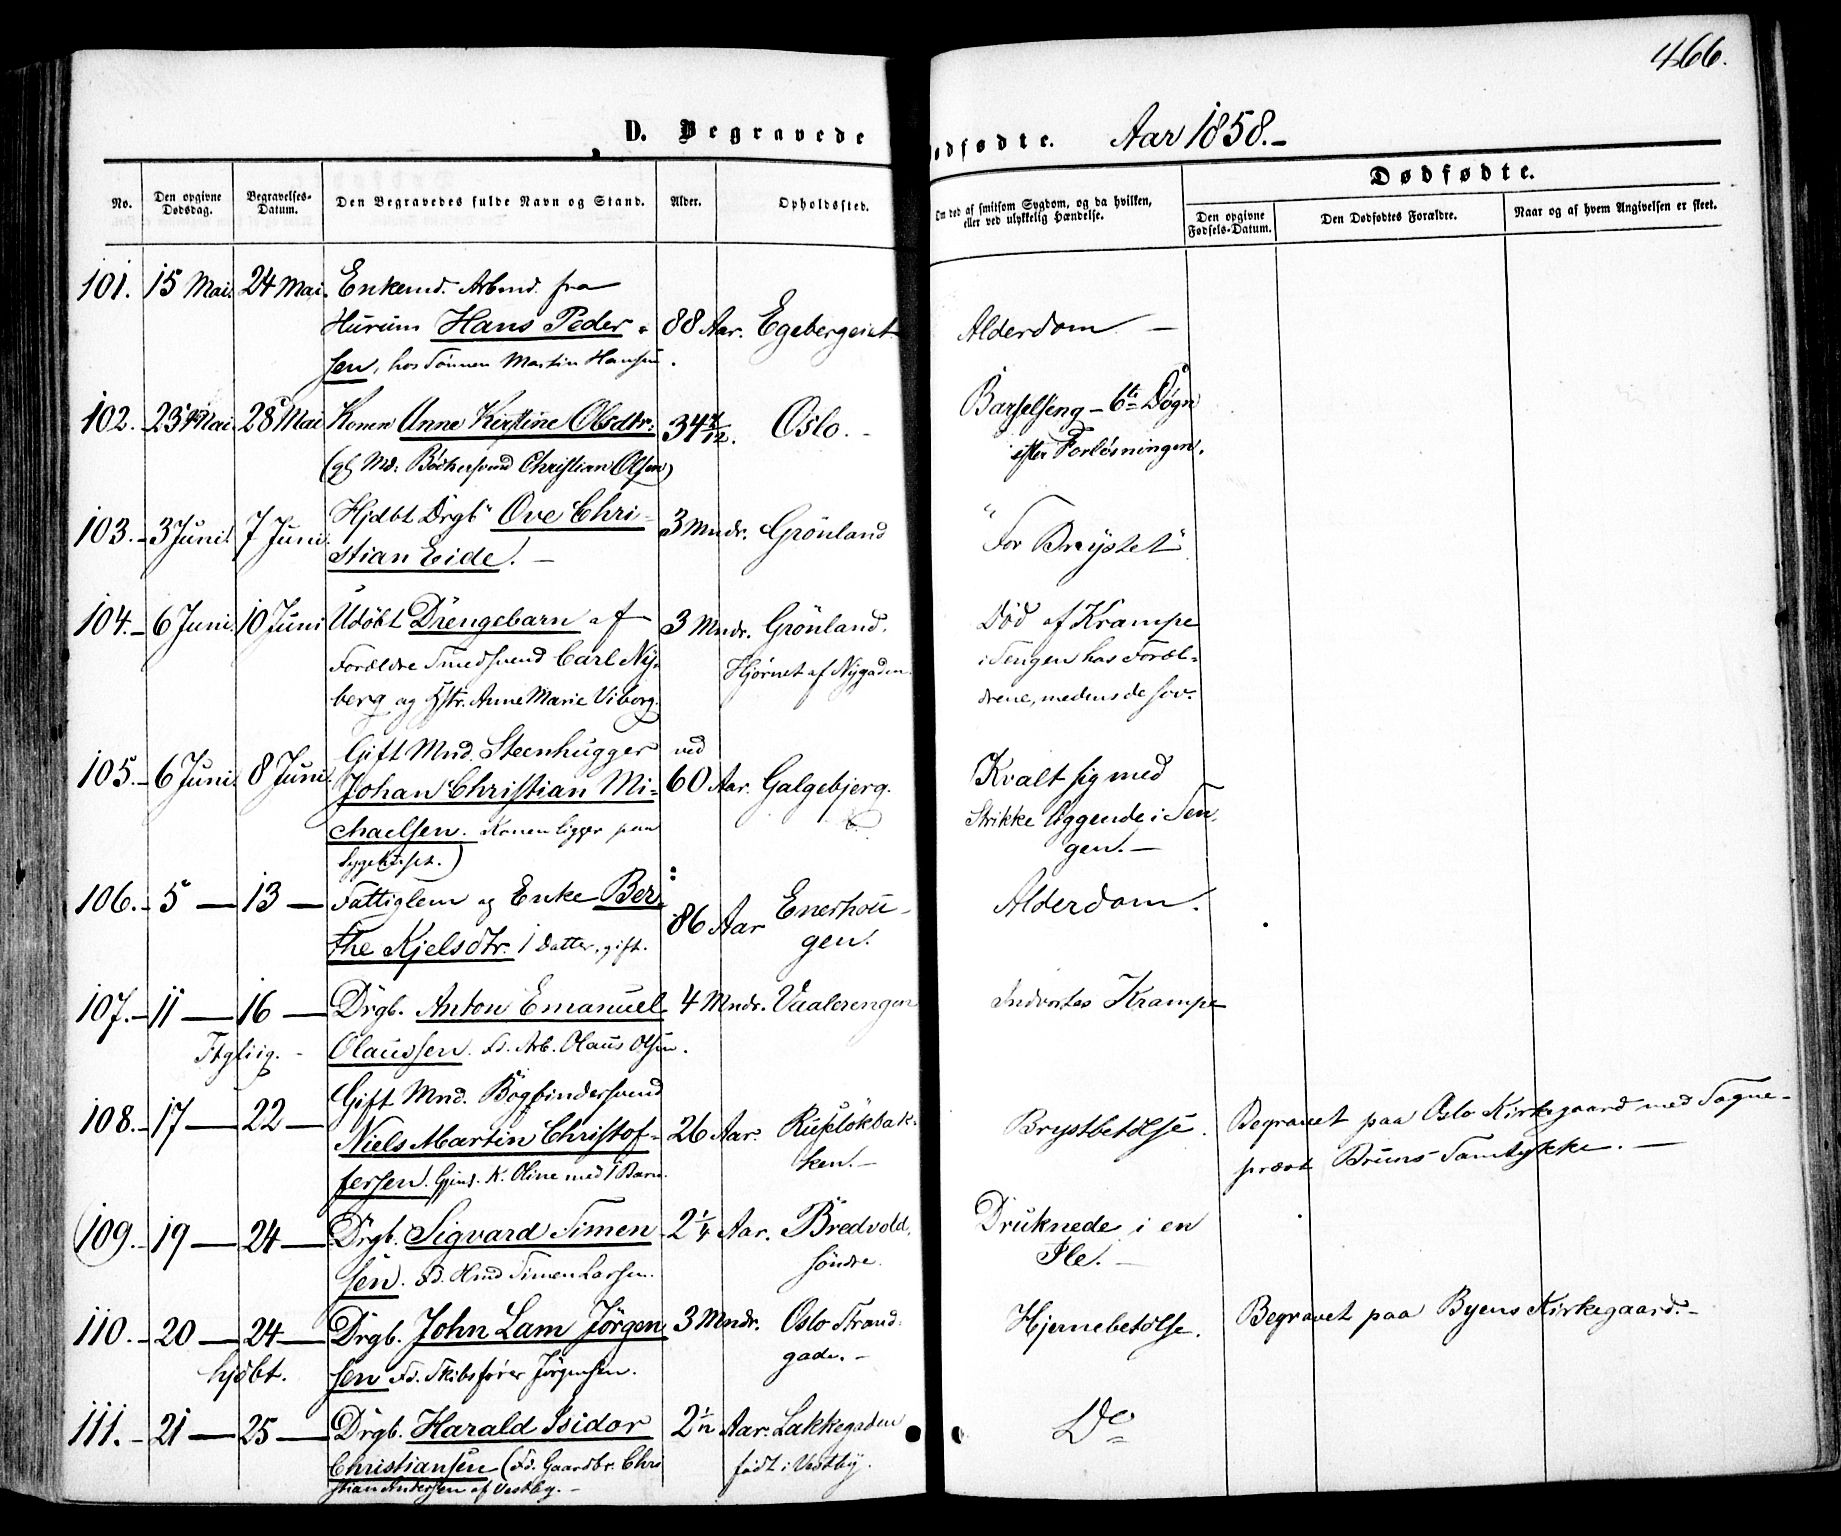 466.
D. Begravede
ødfødte. Aar 1858.-
Dødfødte.
No. Den opgivne Dødsdag. Begravelses-Datum. Den Begravedes fulde Navn og Stand. Alder. Opholdssted. Om død af smitsom Sygdom, og da hvilken, eller ved ulykkelig Hændelse. Den opgivne Fødsels-Datum. Den Dødfødtes Forældre. Naar og af hvem Angivelsen er skeet.
101. 15 Mai. 24 Mai. Enkemd. Arbmd. fra
Hurum Hans Peder- 88 Aar. Egebergeiet Alderdom. —
sen, hos Sønnen Martin Hansen.
102. - 23 Mai 28 Mai Konen Anne Kirstine Olsdtr: 34 7/12. Oslo. - Barselseng - 6te Døgn
(gl Md: Bödkersvend Christian Olsen) efter Forløsningen.
103. - 3 Juni. 7 Juni. Hjdbt Drgb Ove Chri-
stian Eide. — 3 Mndr. Grönland "For Brystet"
104. - 6 Juni. 10 Juni Udöbt Drengebarn af 3 Mndr. Grönland. Död af Krampe
Forældre Smedsvend Carl Ny- Hjörnet af Nygaden. i Sengen hos Foræl-
berg og Hstr. Anne Marie Viborg. drene, medens de sov.
105. - 6 Juni. 8 Juni. Gift Mnd. Steenhugger ved
Johan Christian Mi- 60 Aar. Galgebjerg. Kvalt sig med
chaelsen. Konen ligger paa Strikke liggende i Sen-
Sygehuset.) gen. —
106. - 5 — 13 — Fattiglem og Enke Ber- 86 Aar Enerhou- Alderdom.
the Kjelsdtr. 1 Datter, gift. gen.
107. - 11 — 16 — Drgb. Anton Emanuel 4 Mndr. Vaalerengen Indvortes Krampe
Olaussen. Fd. Arb. Olaus Olsen.
108. - 17 — 22 — Gift Mnd. Bogbindersvend
Niels Martin Christof- 26 Aar. Rulökbak- Brystbetelse. Begravet paa Oslo Kirkegaard med Sogne-
fersen. K. Oline med 1 Barn. ken. — præst Bruns Samtykke. —
109. - 19 — 24 — Drgb. Sigvard Simen- 2 1/4 Aar. Bredvold, Druknede i en
sen. Fd. Hmd Simen Larsen. söndre. Ile. —
110. - 20 — 24 — Drgb. John Lam Jörgen- 3 Mndr. Oslo Strand- Hjernebetelse. Begravet paa Byens Kirkegaard. -
hjdbt. sen Fd. Skibsfører Jörgensen. gade. -
111. - 21 — 25 — Drgb. Harald Isidor 2 1/2 Aar. Lakkegaden Do
Christiansen (Fd. Gaardbr. Chri- födt i Vestby.
stian Andersen af Vestby. —